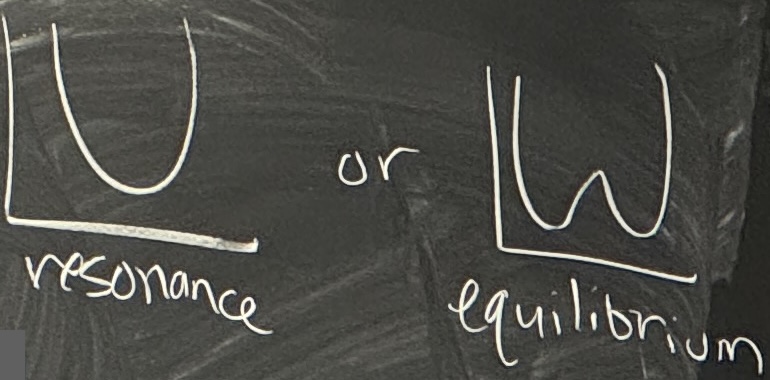 or
resonance
equilibrium